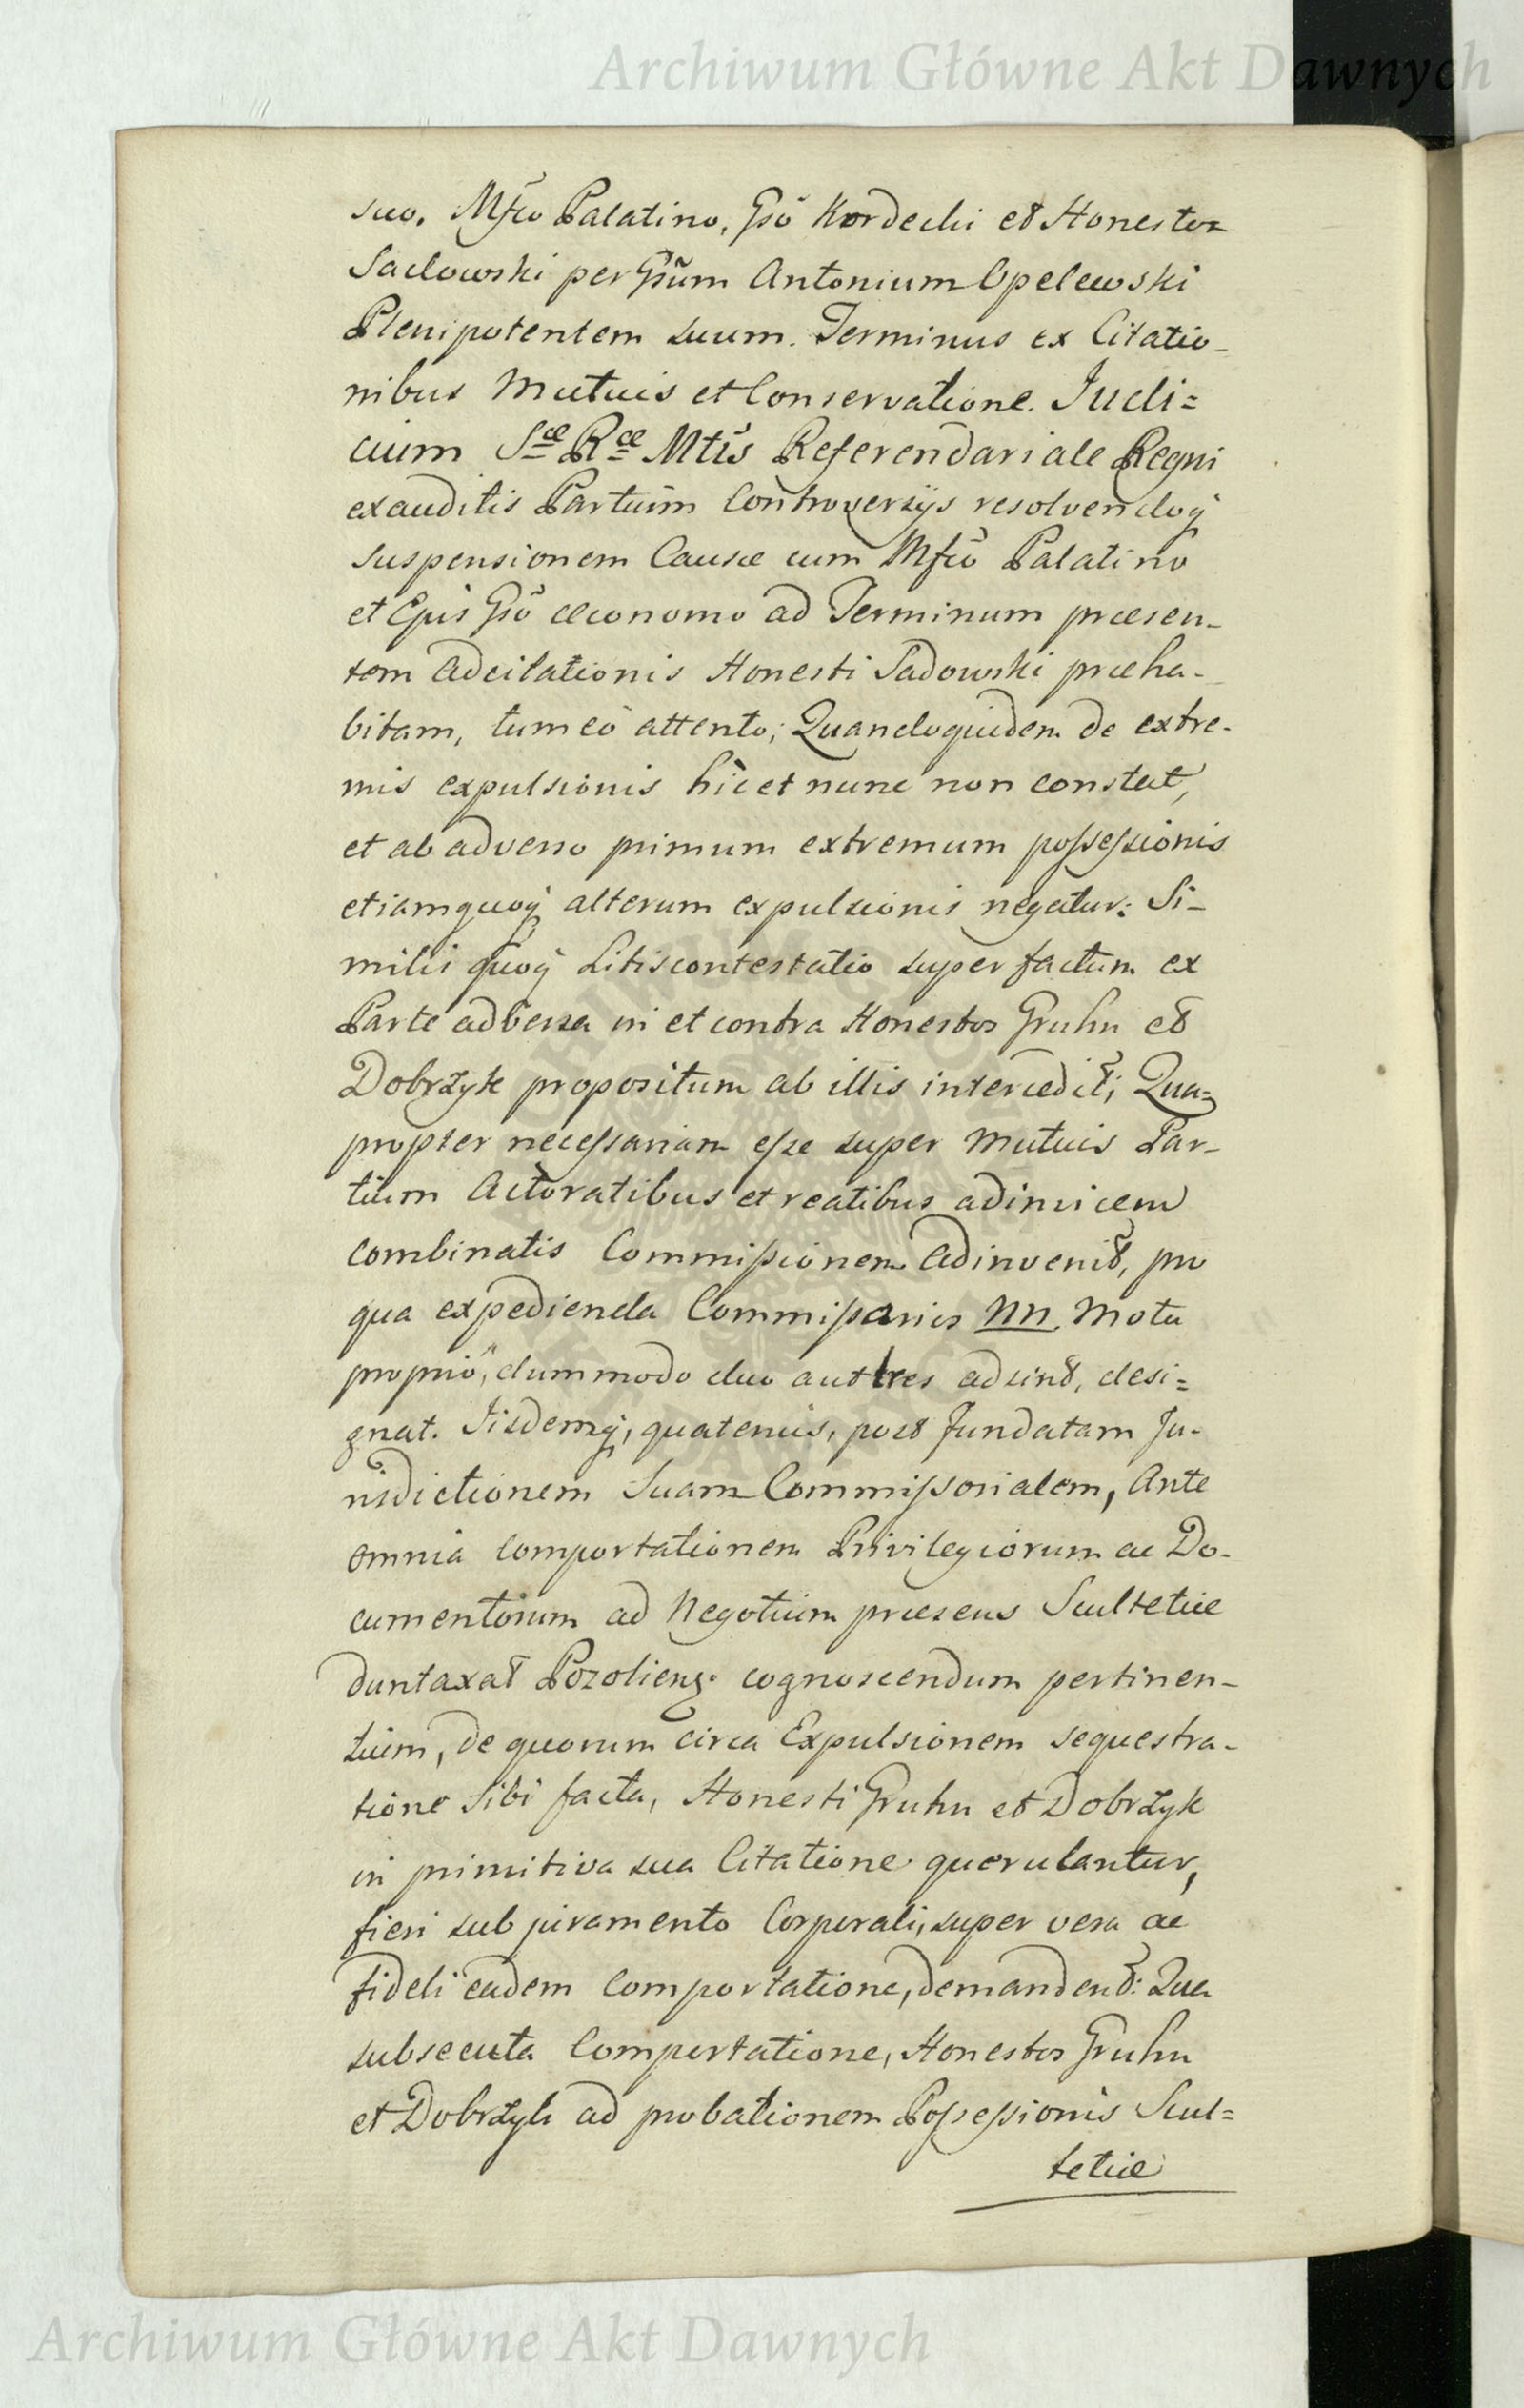 Archiwum Główne Akt Dawnych
suo. Mfco Palatino, Gsõ Kordecki et Honestoz
Sadowski per Gsũm Antonium Opelewski
Plenipotentem suum. Terminus ex Citatio-
nibus Mutuis et Conservatione. Judi=
cium Sæ Ræ Mtis Referendariale Regni
exauditis Partium Controversijs resolvendoq
suspensionem Causæ cum Mfcõ Palatino
et Ejus Gsõ œconomo ad Terminum præsen-
tem Adcitationis Honesti Sadowski præha-
bitam, tum eò attento; Quandoquidem de extre-
mis expulsionis hic et nunc non constat,
et ab adverso primum extremum possessionis
etiamquoq alterum expulsionis negatur: Si-
milis quoq Litiscontestatio super factum ex
Parte adversa in et contra Honestos Gruhn et
Dobrzyk propositum ab illis intercedit; Qua=
propter necessariam esse super Mutuis Par-
tium Actoratibus et reatibus adinvicem
combinatis Commissionem Adinvenit, pro
qua expedienda Commissarios NN. Motu
proprio, dummodo duo aut tres adsint, desi=
gnat. Iisdemq, quatenus, post fundatam Ju-
risdictionem Suam Commissorialem, Ante
omnia Comportationem Privilegiorum ac Do-
cumentorum ad Negotium præsens Scultetiæ
duntaxat Pozoliens. cognoscendum pertinen-
tium, de quorum circa Expulsionem sequestra-
tione sibi facta, Honesti Gruhn et Dobrzyk
in primitiva sua Citatione querulantur,
fieri sub juramento Corporali, super vera ac
fideli eadem Comportatione, demandent: Qua
subsecuta Comportatione, Honestos Gruhn
et Dobrzyk ad probationem Possessionis Scul=
tetiæ
Archiwum Główne Akt Dawnych